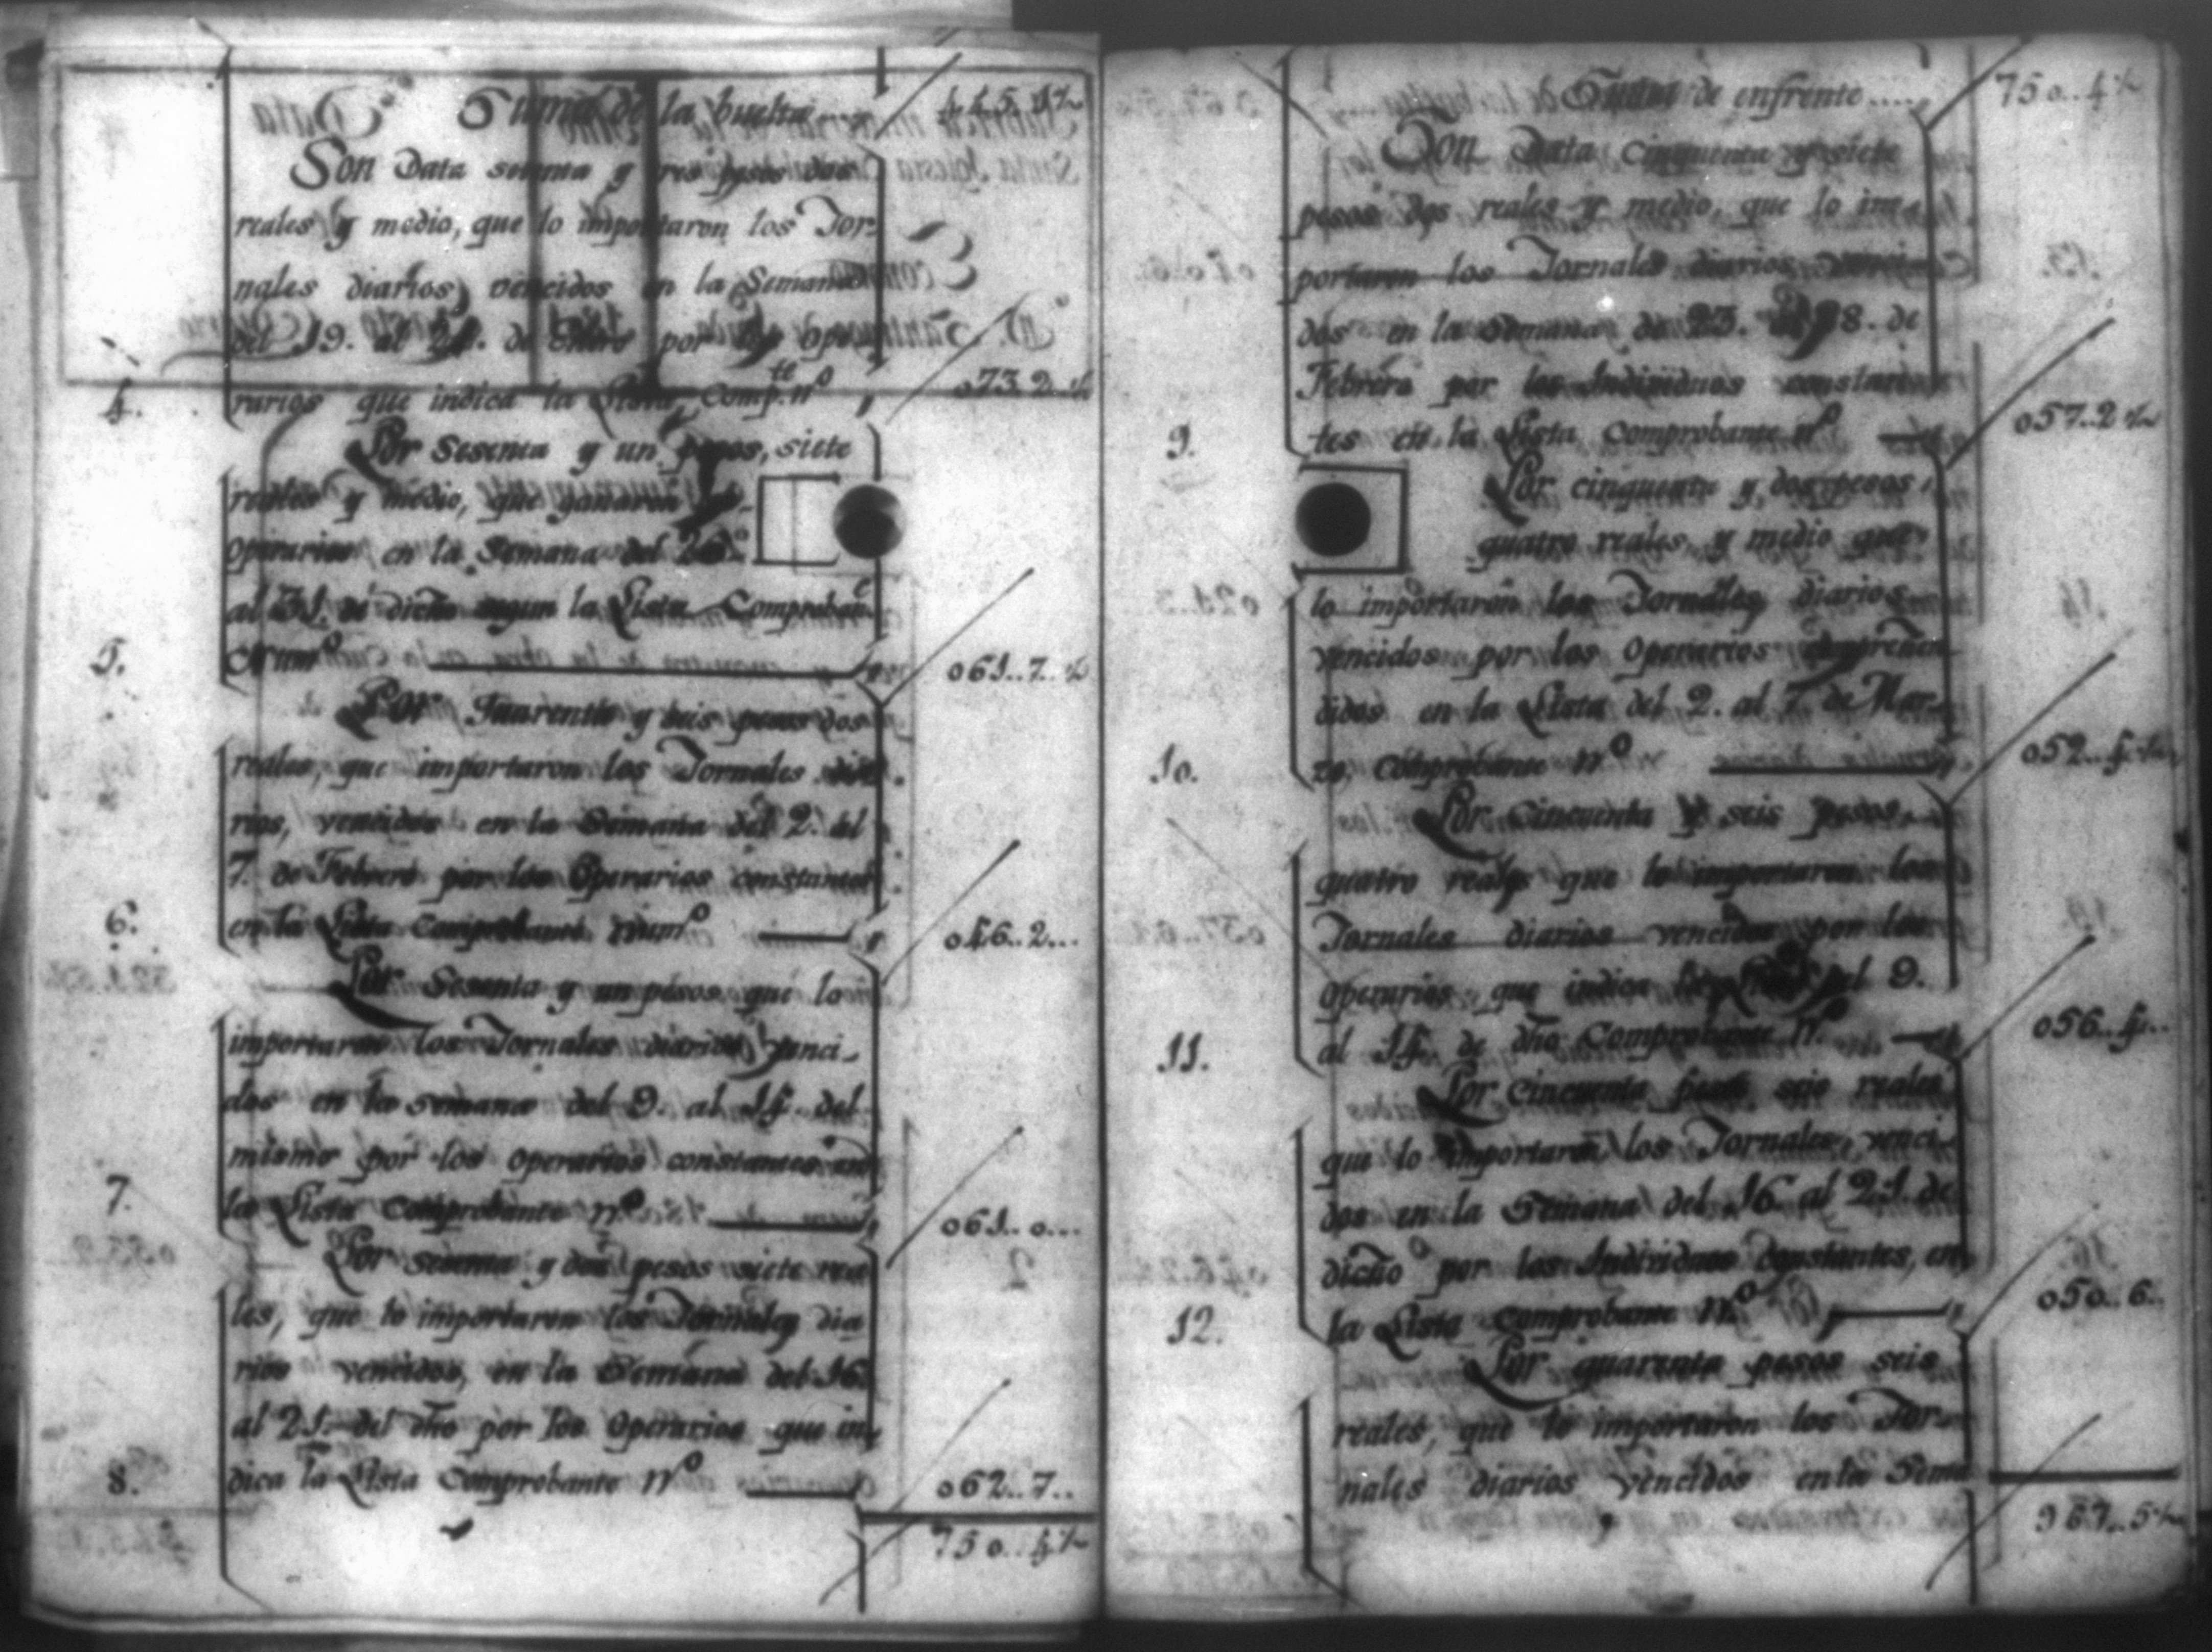 Suma de la buelta....
445..1½
Son Data setenta y tres pesos dos
reales y medio, que lo importaron los Jor-
nales diarios vencidos en la Semana
del 19. al 24. de Enero por los Ope-
4. rarios que indica la Lista Comp.te nº
073..2..½
Por Sesenta y un pesos, siete
reales y medio, que ganaron los
Operarios en la Semana del 26.
al 31. de dicho segun la Lista Comproban.e
5. Numº
061..7..½
Por Quarenta y seis pesos dos
reales, que importaron los Jornales dia-
rios, vencidos en la Semana del 2. al
7. de Febrero por los Operarios constantes
6. en la Lista Comprobante numº
046..2...
Por Sesenta y un pesos que lo
importaron los Jornales diarios venci-
dos en la semana del 9. al 14. del
mismo por los operarios constantes en
7. la Lista Comprobante nº
061..0...
Por sesenta y dos pesos siete rea-
les, que lo importaron los Jornales dia-
rios vencidos, en la Semana del 16
al 21. del dho por los Operarios que in-
8. dica la Lista Comprobante Nº
062..7..
750..4.½
Suma de enfrente....
750..4½
Son Data cinquenta y siete
pesos dos reales y medio, que lo im-
portaron los Jornales diarios venci-
dos en la Semana de 23. al 28. de
Febrero por los Individuos constan-
9. tes en la Lista Comprobante nº
057..2½
Por cinquenta y dos pesos
quatro reales y medio que
lo importaron los Jornales diarios
vencidos por los Operarios comprehen-
didos en la Lista del 2. al 7. de Mar-
10. zo, Comprobante nº
052..4.½
Por Cincuenta y seis pesos,
quatro reales que lo importaron los
Jornales diarios vencidos por los
operarios que indica la Lista del 9.
11. al 14. de dho Comprobante nº
056..4..
Por Cincuenta pesos seis reales
que lo importaron los Jornales, venci-
dos en la Semana del 16 al 21. de
dicho por los Individuos Constantes, en
12. la Lista Comprobante Nº
050..6..
Por quarenta pesos seis
reales, que lo importaron los Jor-
nales diarios vencidos en la Sema
967..5½